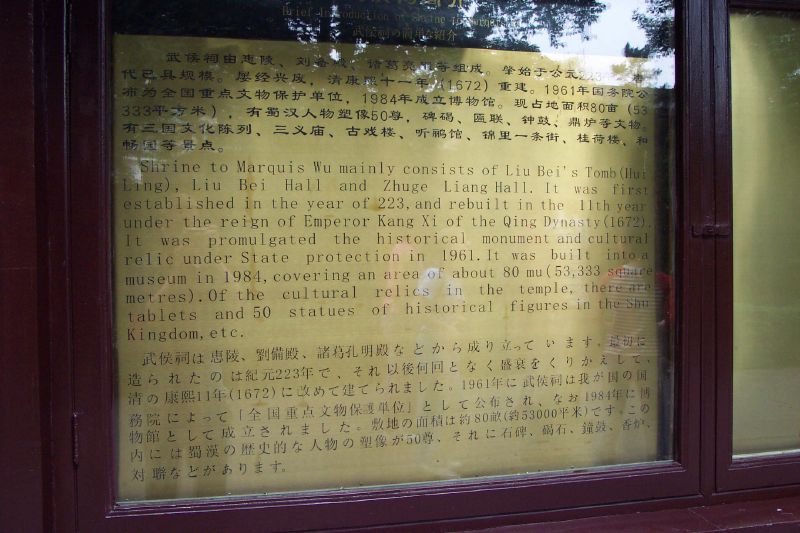 Brief Introduction of Shrine to
武侯祠の簡単な紹介
武侯祠由惠陵、刘备殿、诸葛亮殿等组成。肇始于公元223年,
代已具规模。屡经兴废，清康熙十一年（1672）重建。1961年国务院公
布为全国重点文物保护单位，1984年成立博物馆。现占地面积80亩（53
333平方米），有蜀汉人物塑像50尊，碑碣、匾联、钟鼓、鼎炉等文物。
有三国文化陈列、三义庙、古戏楼、听鹂馆、锦里一条街、桂荷楼、和
畅园等景点。
Shrine to Marquis Wu mainly consists of Liu Bei's Tomb(Hui
Ling), Liu Bei Hall and Zhuge Liang Hall. It was first
established in the year of 223, and rebuilt in the 11th year
under the reign of Emperor Kang Xi of the Qing Dynasty(1672).
It was promulgated the historical monument and cultural
relic under State protection in 1961. It was built into a
museum in 1984, covering an area of about 80 mu(53,333 square
metres). Of the cultural relics in the temple, there are
tablets and 50 statues of historical figures in the Shu
Kingdom, etc.
武侯祠は恵陵、劉備殿、諸葛孔明殿などから成り立っています。最初に
造られたのは紀元223年で、それ以後何回となく盛衰をくりかえして、
清の康熙11年(1672)に改めて建てられました。1961年に武侯祠は我が国の国
務院によって「全国重点文物保護単位」として公布され、なお1984年に博
物館として成立されました。敷地の面積は約80畝(約53000平米)です。この
内には蜀漢の歴史的な人物の塑像が50尊、それに石碑、碣石、鐘鼓、香炉、
対聯などがあります。